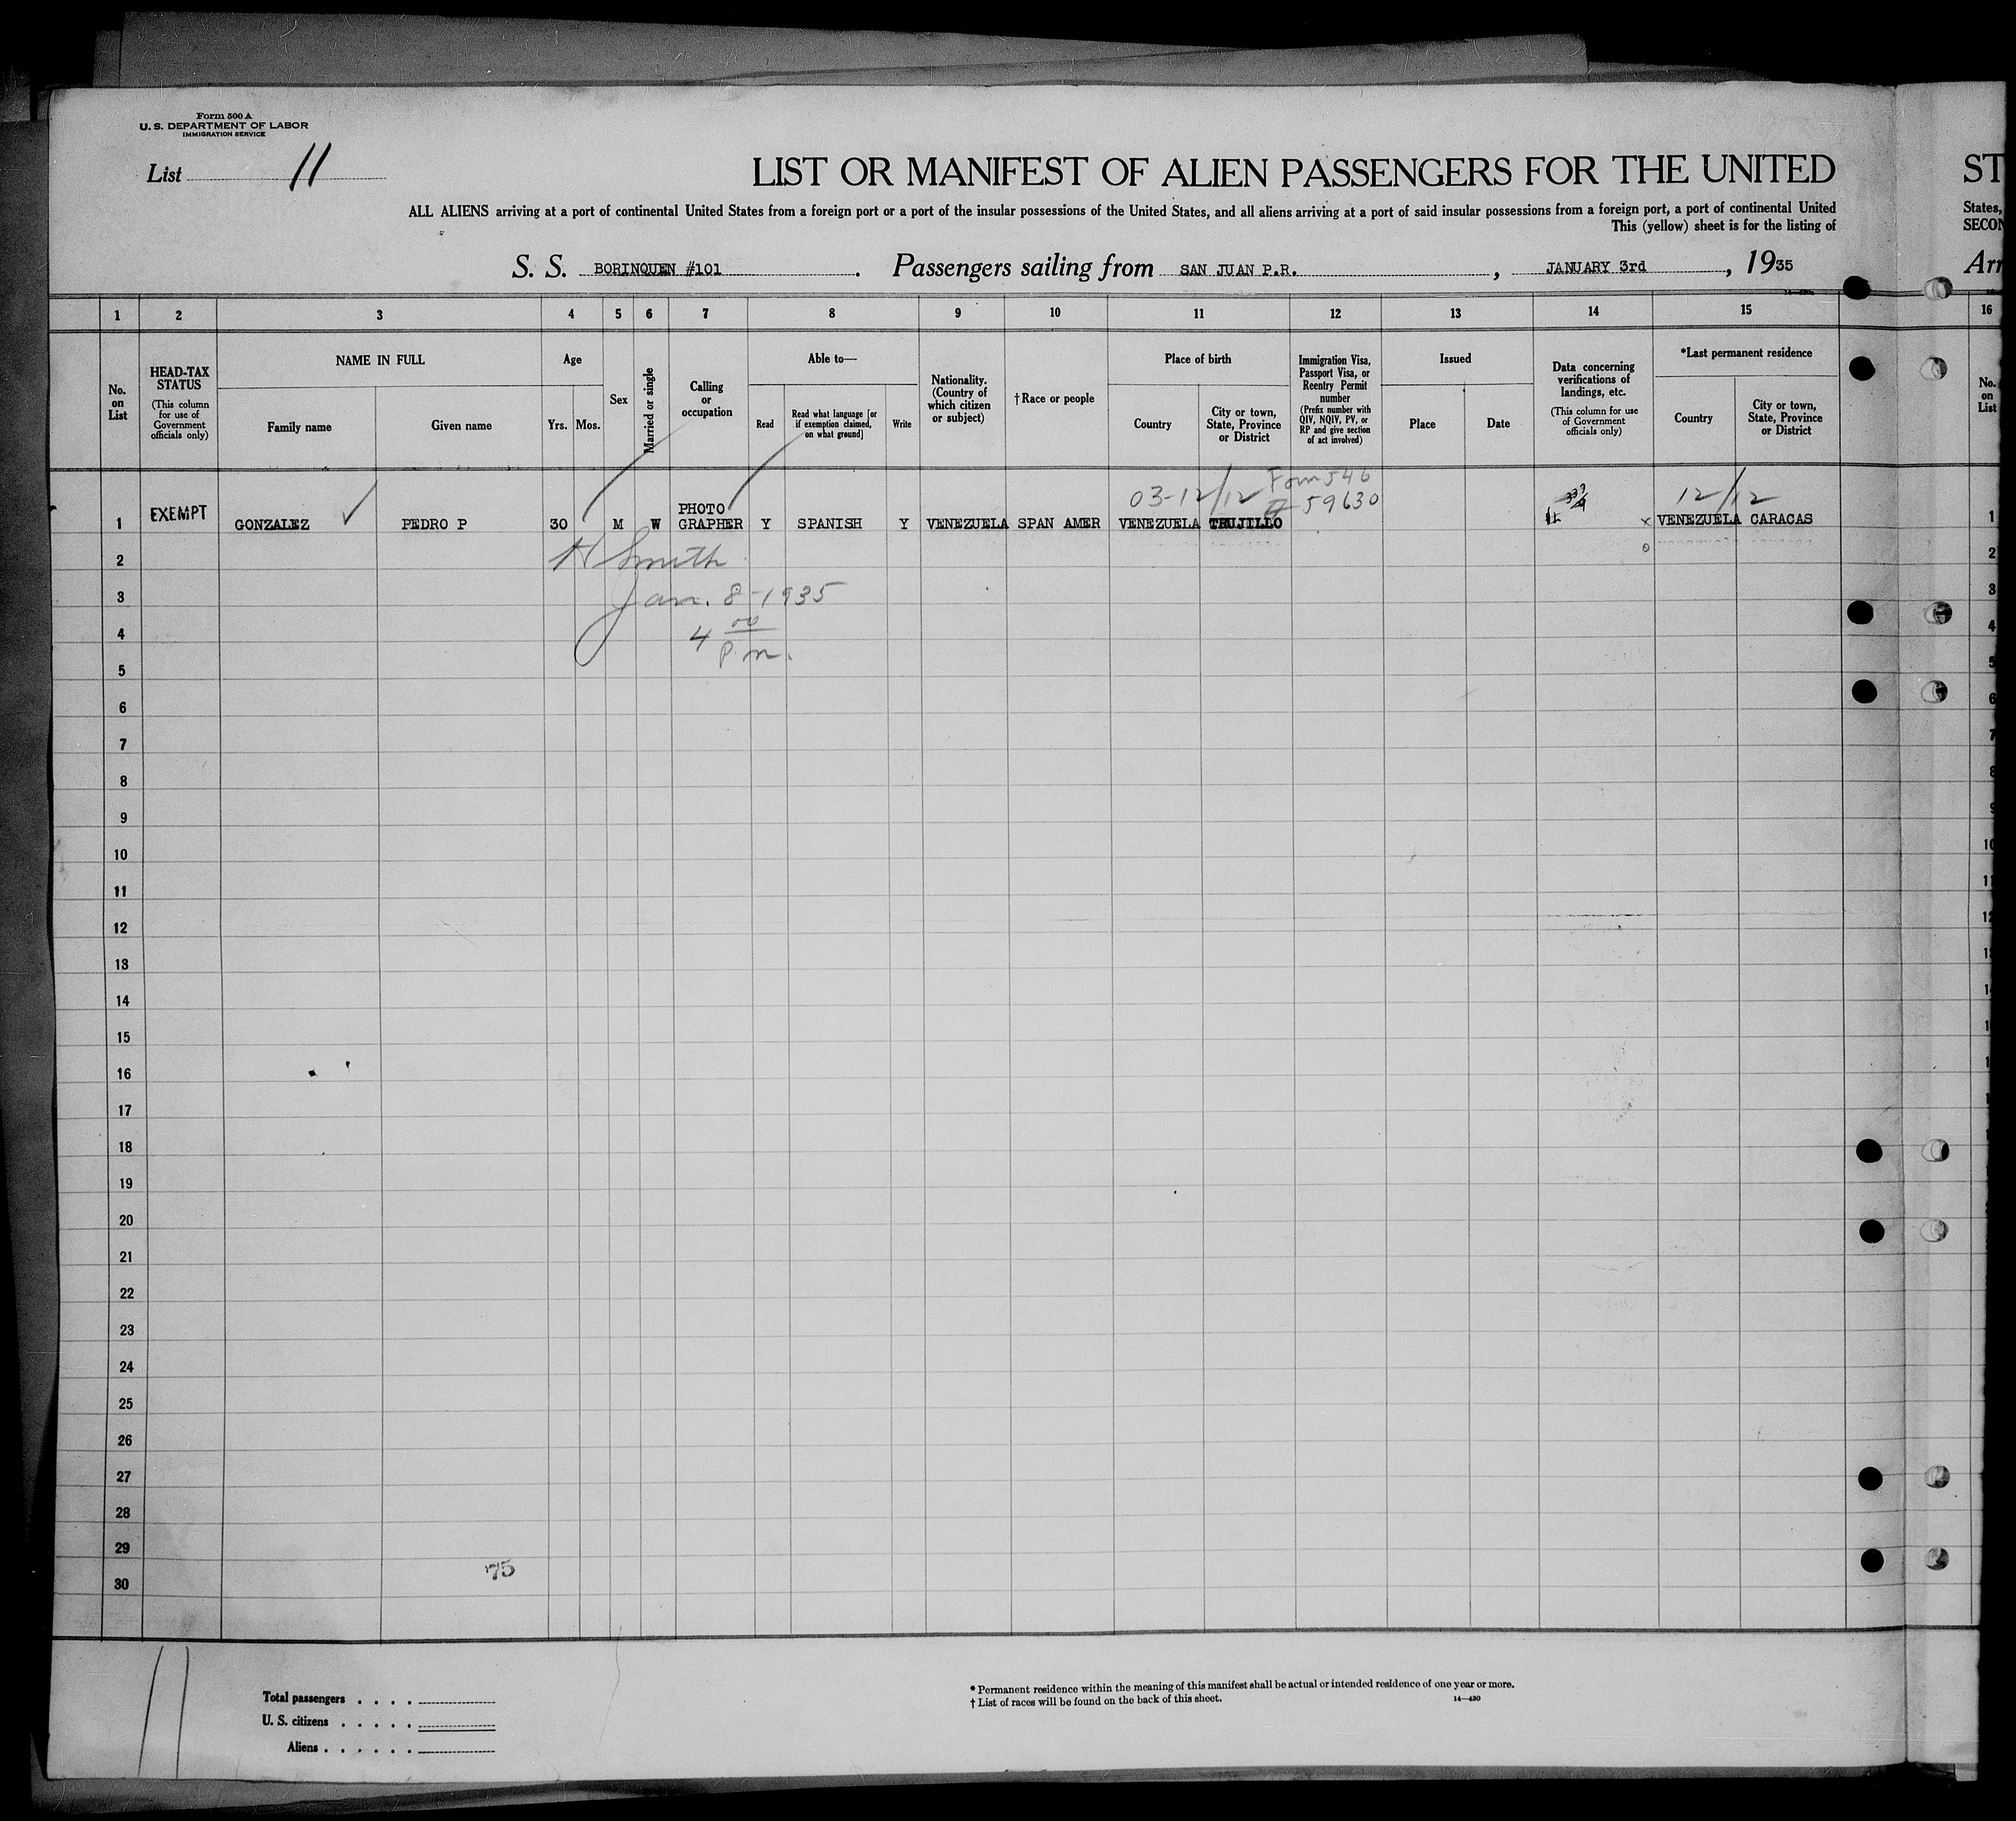 Form 500 A
U. S. DEPARTMENT OF LABOR
IMMIGRATION SERVICE
List 11
LIST OR MANIFEST OF ALIEN PASSENGERS FOR THE UNITED
ST
ALL ALIENS arriving at a port of continental United States from a foreign port or a port of the insular possessions of the United States, and all aliens arriving at a port of said insular possessions from a foreign port, a port of continental United
States,
This (yellow) sheet is for the listing of
SECON
S. S. BORINQUEN #101 . Passengers sailing from SAN JUAN P.R. , JANUARY 3rd , 1935
Arr
1 2 3 4 5 6 7 8 9 10 11 12 13 14 15 16
No. on List
HEAD-TAX STATUS
(This column for use of Government officials only)
NAME IN FULL
Family name
Given name
Age
Yrs.
Mos.
Sex
Married or single
Calling or occupation
Able to—
Read
Read what language [or if exemption claimed, on what ground]
Write
Nationality. (Country of which citizen or subject)
†Race or people
Place of birth
Country
City or town, State, Province or District
Immigration Visa, Passport Visa, or Reentry Permit number
(Prefix number with QIV, NQIV, PV, or RP and give section of act involved)
Issued
Place
Date
Data concerning verifications of landings, etc.
(This column for use of Government officials only)
*Last permanent residence
Country
City or town, State, Province or District
No. on List
03-12/12 Form 546
59630
12/12
1 EXEMPT GONZALEZ PEDRO P 30 M W PHOTO GRAPHER Y SPANISH Y VENEZUELA SPAN AMER VENEZUELA TRUJILLO x VENEZUELA CARACAS 1
2 H Smith 2
3 Jan. 8-1935 3
4 4 00 4
5 P.m. 5
6 6
7 7
8 8
9 9
10 10
11 11
12
13
14
15
16
17
18
19
20
21
22
23
24
25
26
27
28
29
75
30
11
Total passengers . . . .
U. S. citizens . . . . .
Aliens . . . . . .
* Permanent residence within the meaning of this manifest shall be actual or intended residence of one year or more.
† List of races will be found on the back of this sheet.
14—430